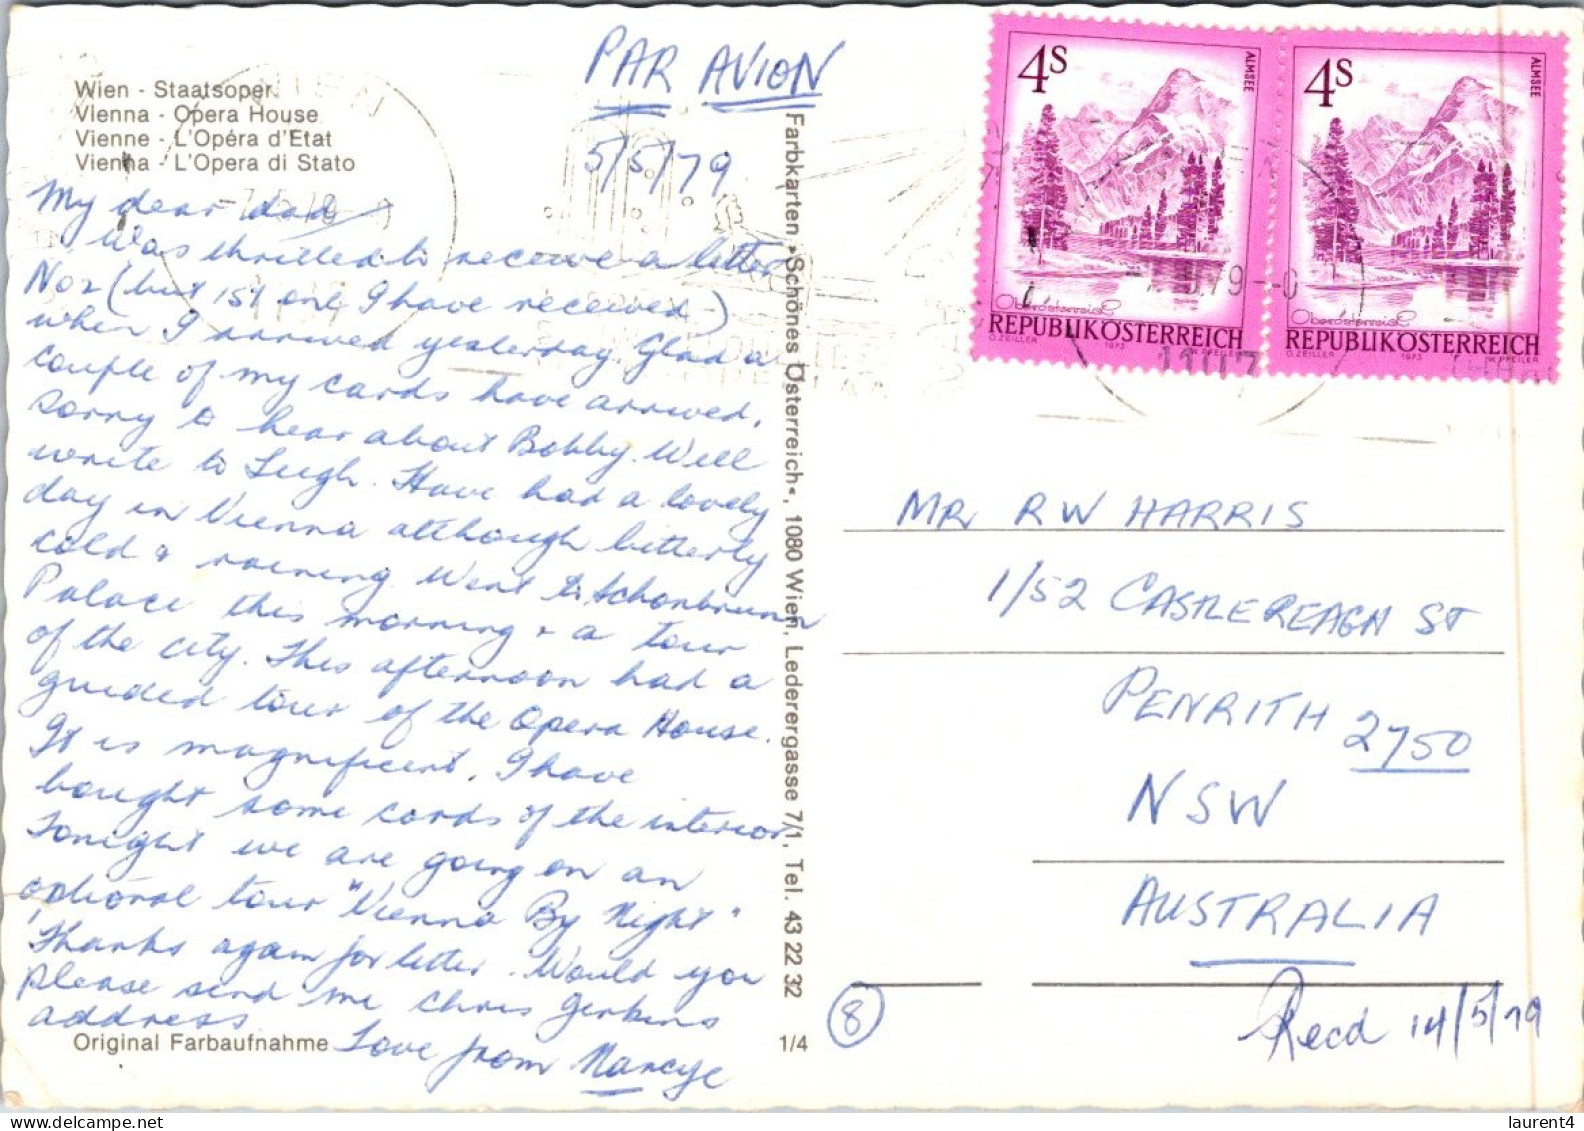 Wien - Staatsoper
Vienna - Opera House
Vienne - L'Opéra d'Etat
Vienna - L'Opera di Stato
PAR AVION
5/5/79
My dear dad
Was thrilled to receive a letter
No 2 (but 1st one I have received)
when I arrived yesterday. Glad a
couple of my cards have arrived.
Sorry to hear about Bobby. Will
write to Leigh. Have had a lovely
day in Vienna although bitterly
cold & raining. Went to Schonbrunn
Palace this morning & a tour
of the city. This afternoon had a
guided tour of the Opera House.
It is magnificent. I have
bought some cards of the interior
Tonight we are going on an
optional tour "Vienna By Night"
Thanks again for letter. Would you
please send me Chris Jenkins
address
Love from Nancye
Original Farbaufnahme
Farbkarten »Schönes Österreich«, 1080 Wien, Lederergasse 7/1, Tel. 43 22 32
1/4
4S
ALMSEE
Oberösterreich
REPUBLIK ÖSTERREICH
O. ZEILLER 1973 W. PFEILER
4S
ALMSEE
Oberösterreich
REPUBLIK ÖSTERREICH
O. ZEILLER 1973 W. PFEILER
MR RW HARRIS
1/52 CASTLEREAGH ST
PENRITH 2750
NSW
AUSTRALIA
8
Recd 14/5/79
laurent4